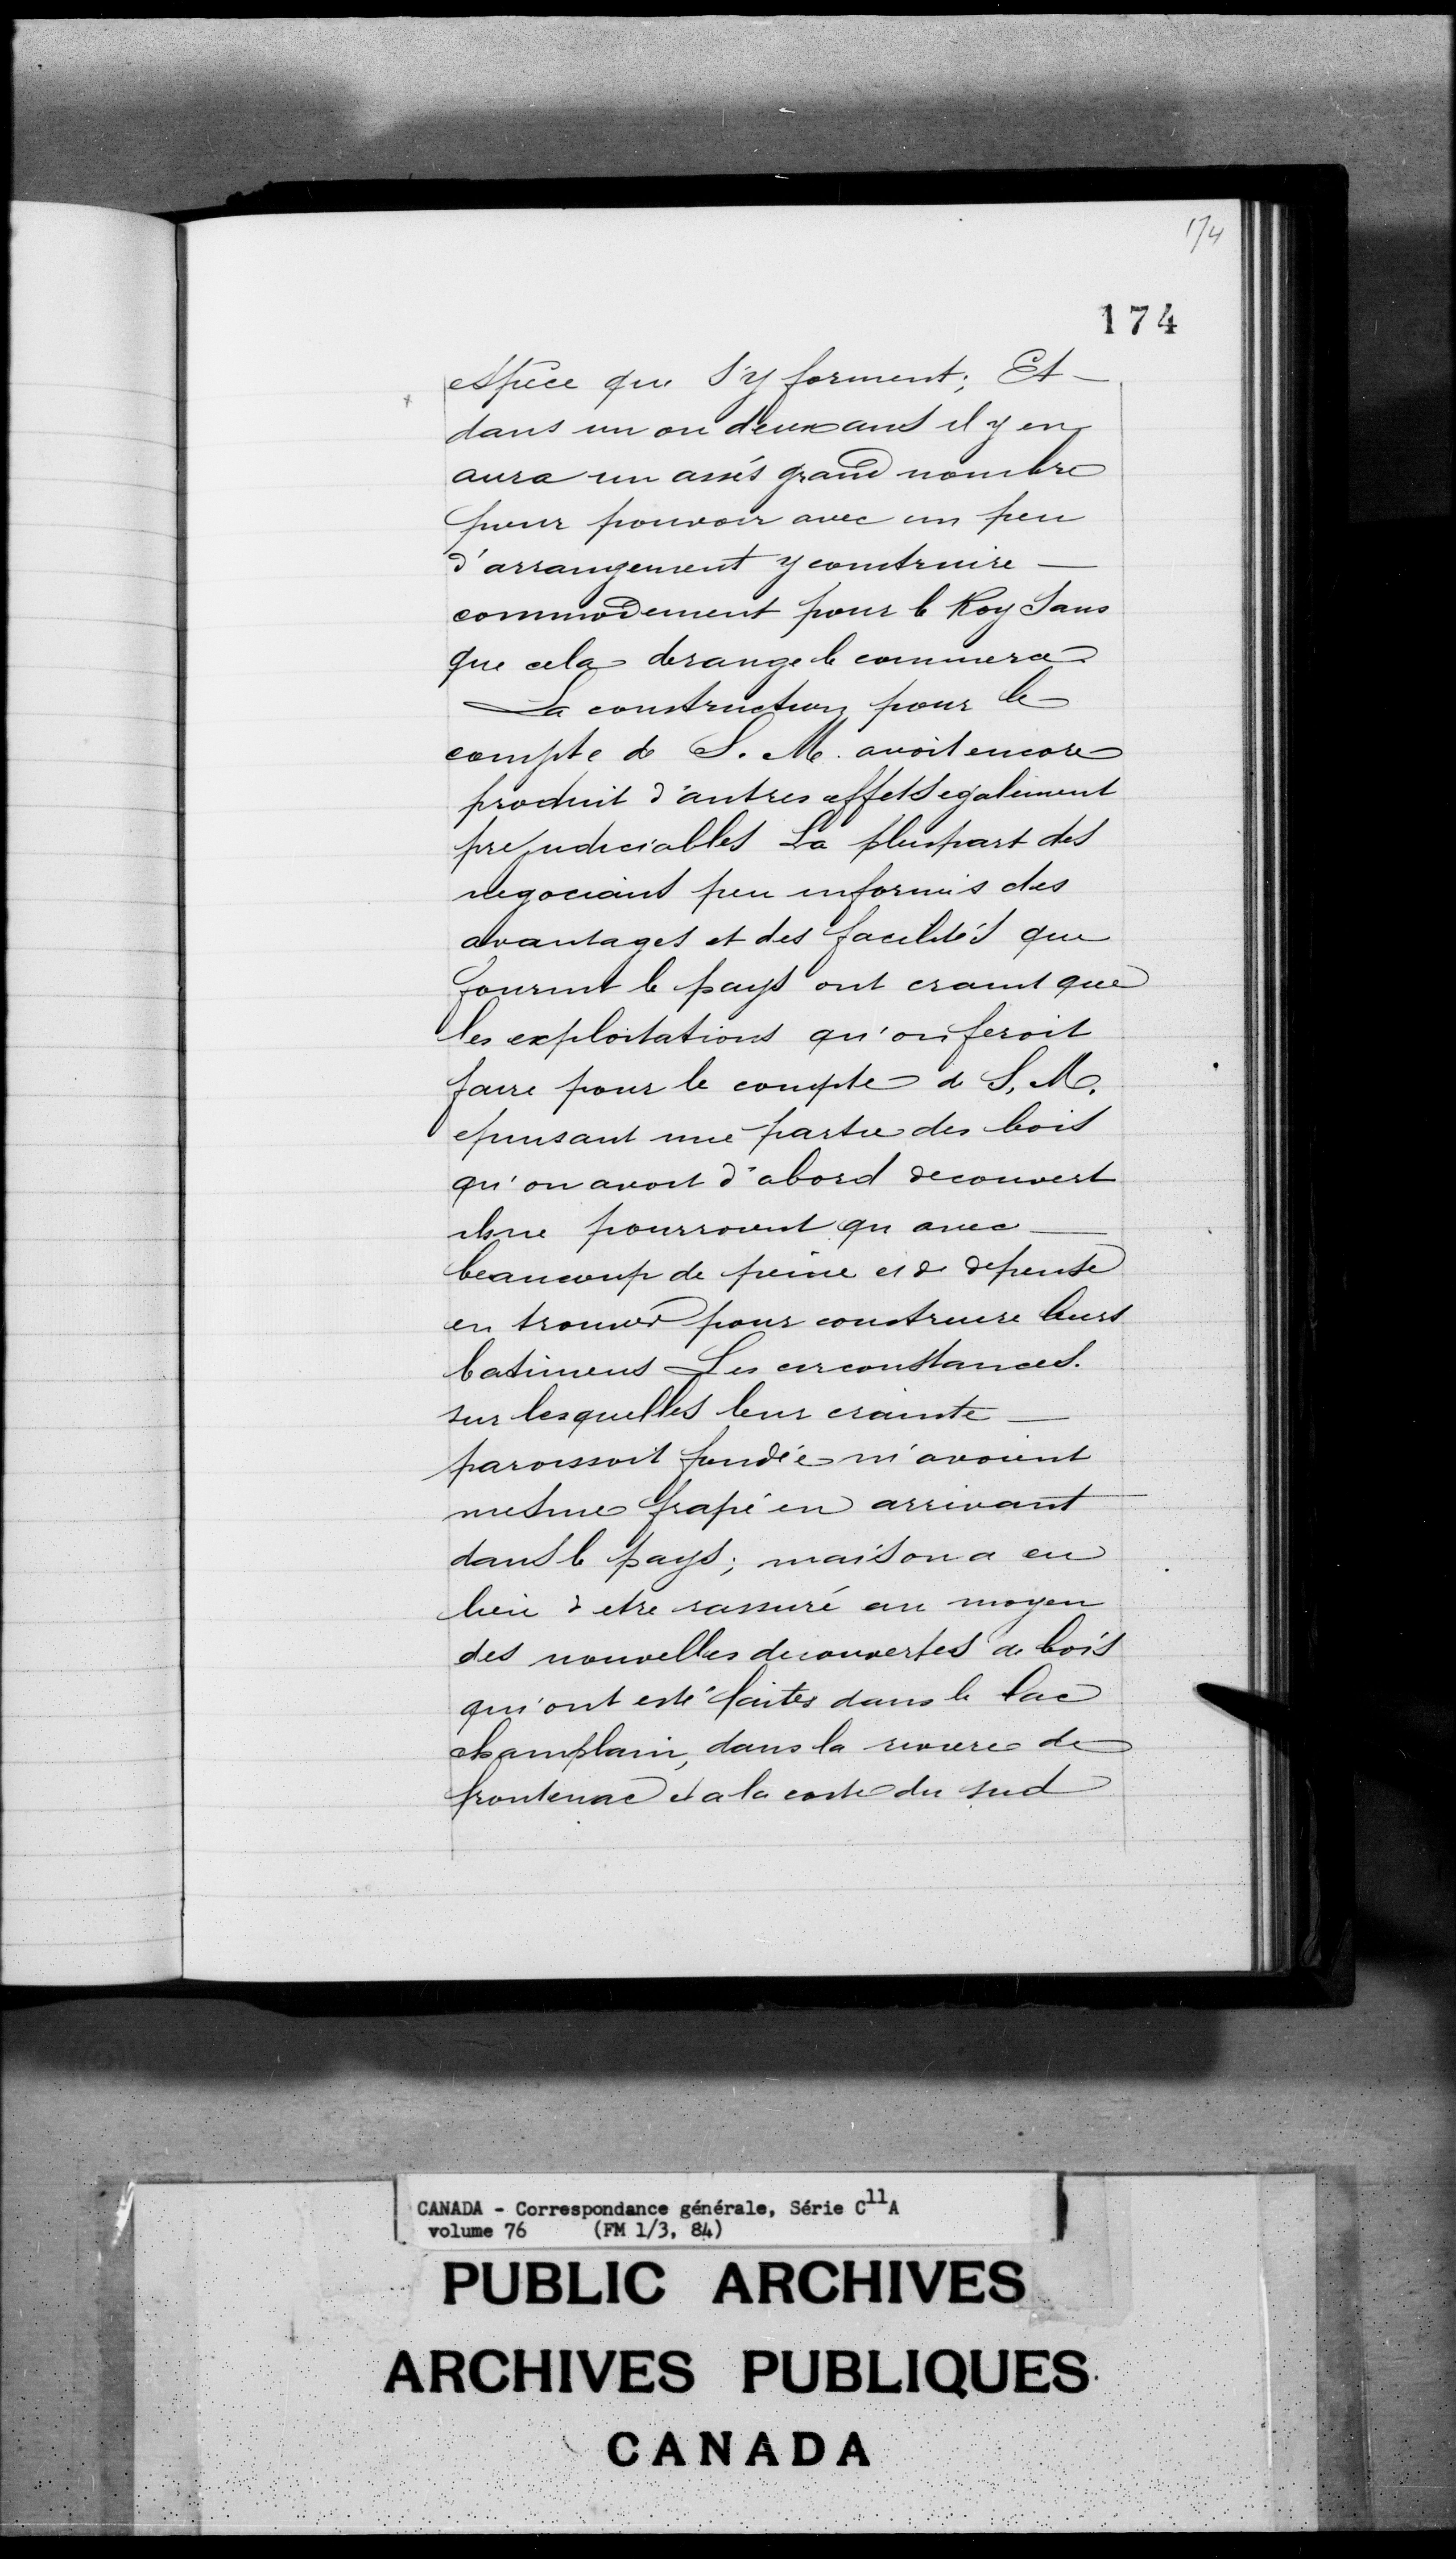 174
174
espece qui s'y forment; Et —
dans un ou deux ans il y en
aura un assés grand nombre
pour pouvoir avec un peu
d'arrangement y construire —
commodement pour le Roy sans
que cela derange le commerce
La construction pour le
compte de S. M. avoit encore
produit d'autres effets egalement
prejudiciables La pluspart des
negociant peu informés des
avantages et des facilités que
fournit le pays ont craint que
les exploitations qu'on feroit
faire pour le compte de S. M.
epuisant une partie des bois
qu'on avoit d'abord decouvert
ils ne pourroient qu avec —
beaucoup de peine et de depense
en trouver pour construire leurs
batimens Les circonstances.
sur lesquelles leur crainte —
paroissoit fondée m'avoient
mesme frapé en arrivant
dans le pays; mais on a eu
lieu d etre rassuré au moyen
des nouvelles decouvertes de bois
qui ont esté faites dans le lac
champlain, dans la riviere de
frontenac et a la coste du sud
CANADA - Correspondance générale, Série C11A
volume 76 (FM 1/3, 84)
PUBLIC ARCHIVES
ARCHIVES PUBLIQUES
CANADA